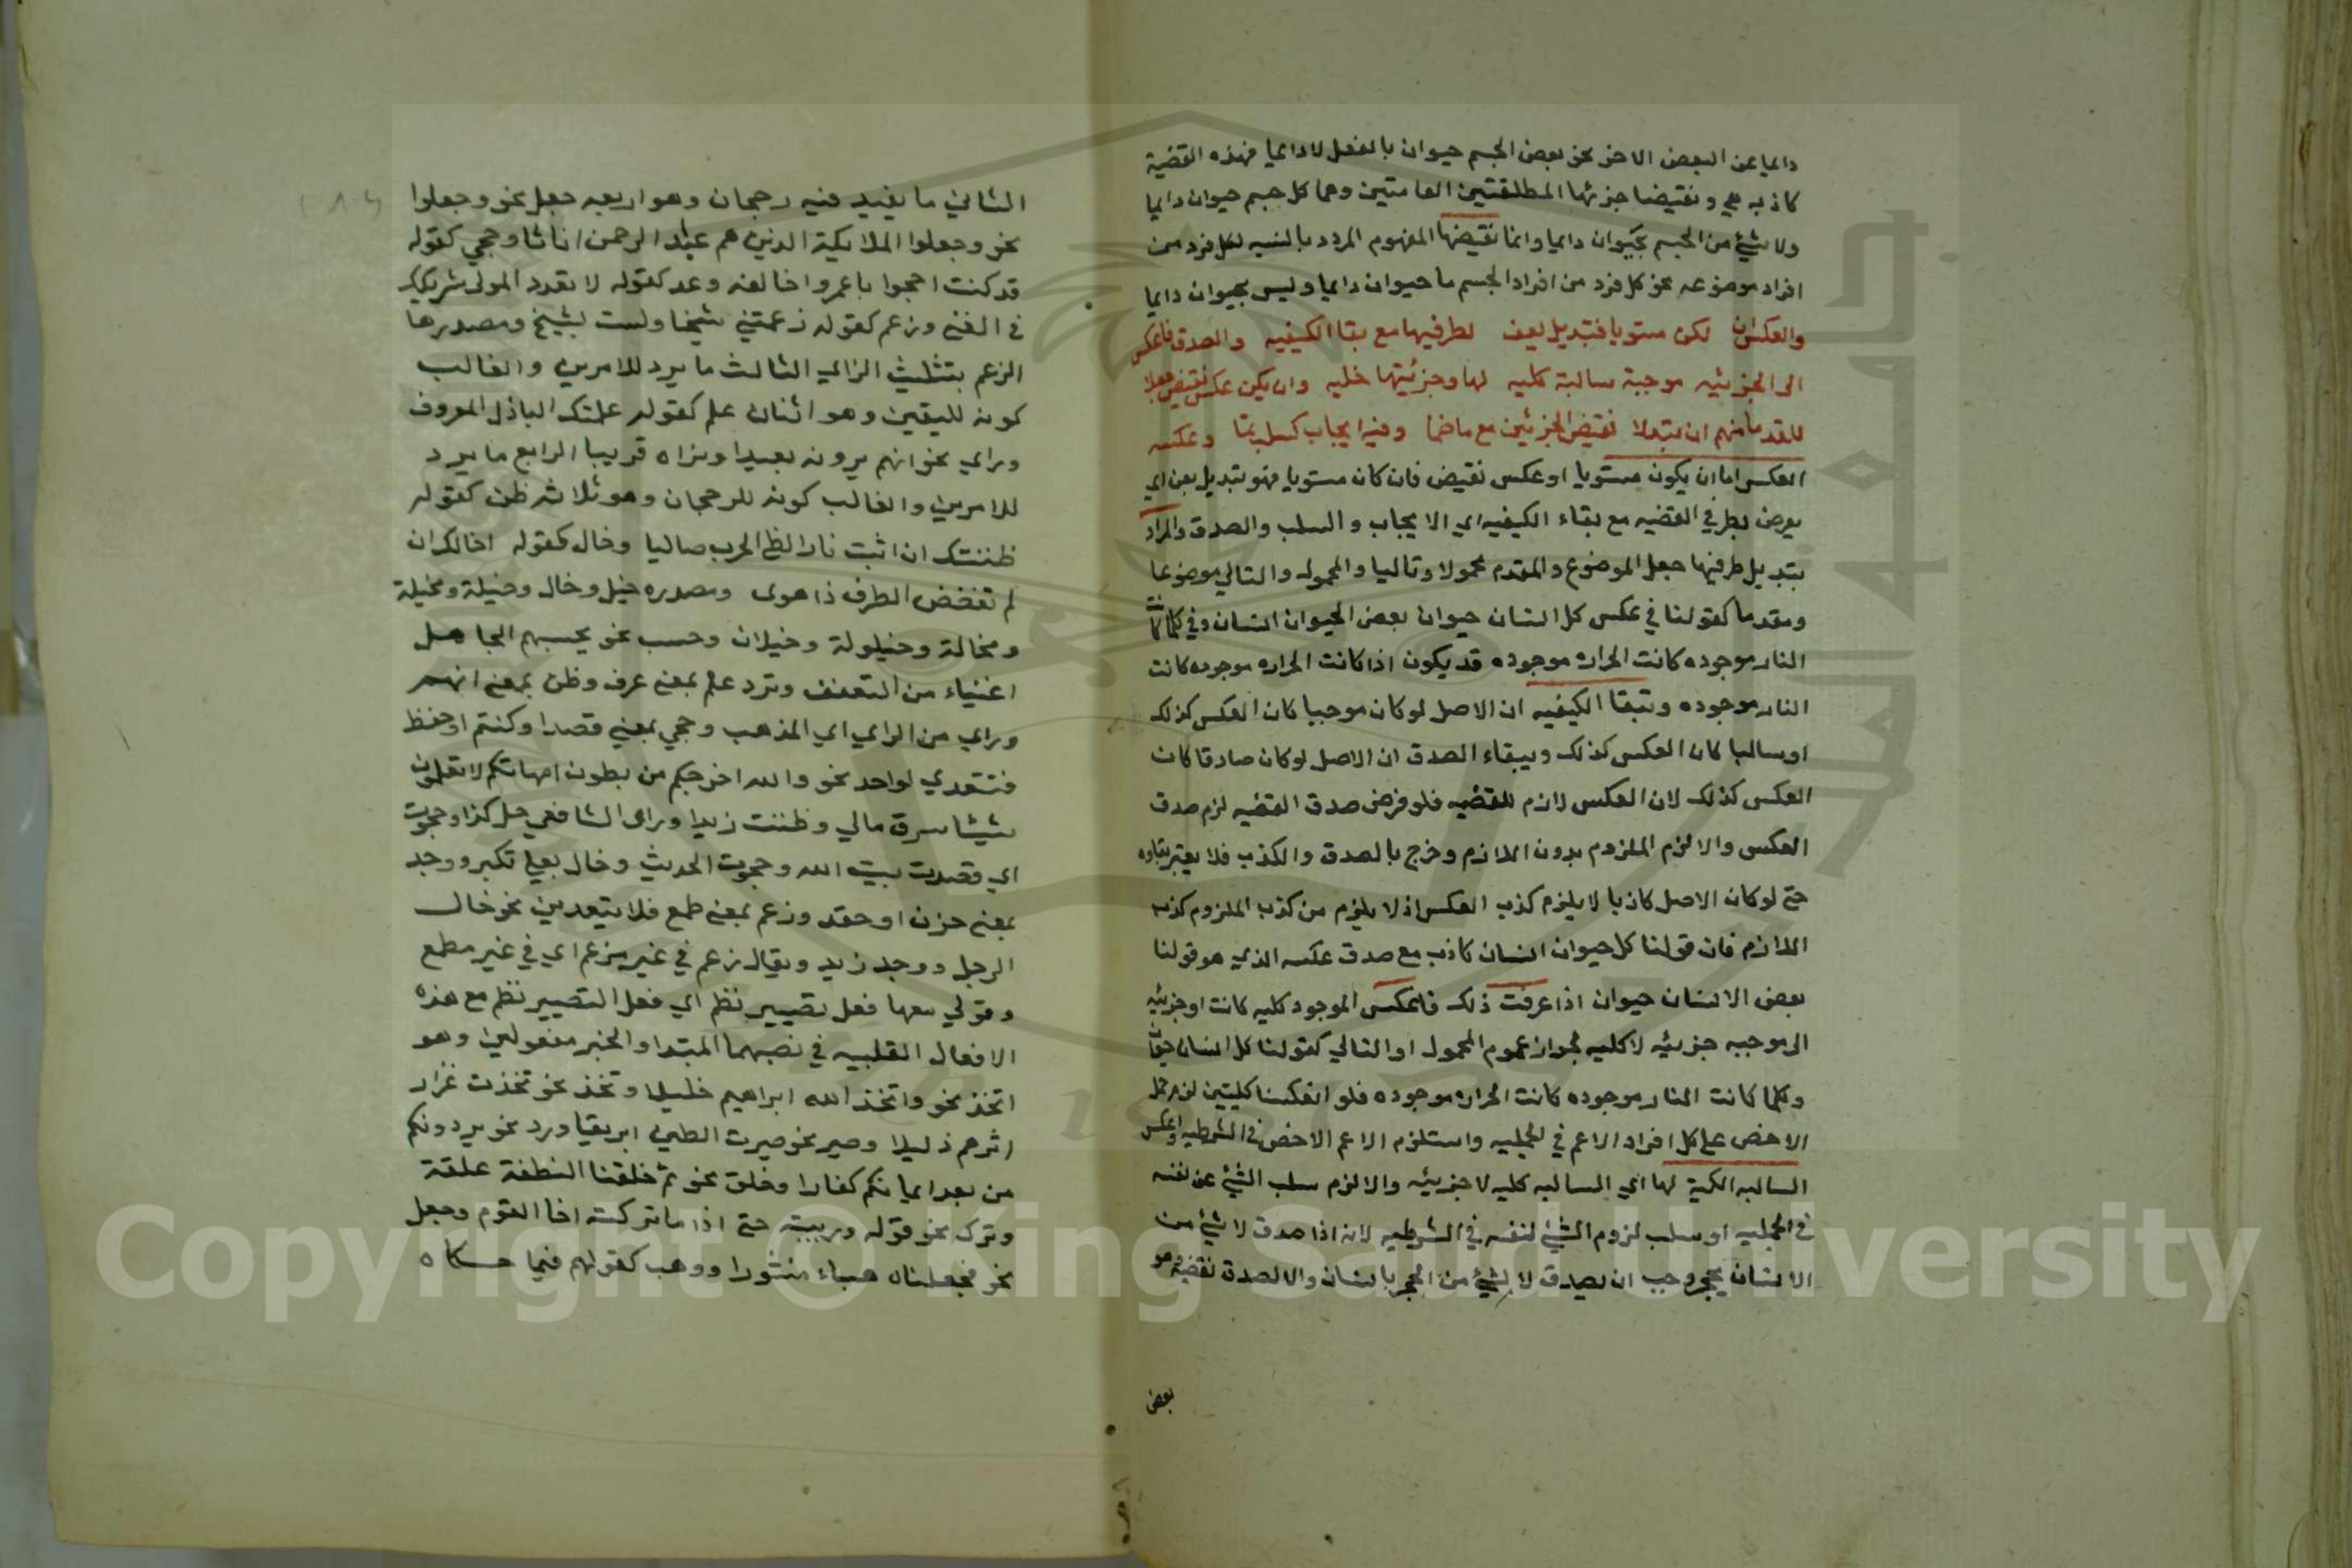 دايما عن البعض الاخر نحو بعض الجسم حيوان بالفعل لا دايما فهذه القضية
كاذبه هي ونقيضا جزئها المطلقتين العامتين وهما كل جسم حيوان دايما
ولا شيئ من الجسم بحيوان دايما وانما نقيضها المفهوم المردد بالنسبه لكل فرد من
افراد موضوعه نحو كل فرد من افراد الجسم ما حيوان دايما وليس بحيوان دايما
والعكس ان لكن مستويا فتبديل يعف لطرفيها مع بقا الكيفيه والصدق فاعكس
الى الجزئيه موجبة سالبة كليه لها وجزئيتها خليه وان يكن عكس نقيض جعلا
للقدما منهم ان يتبدلا نقيض الجزئين مع ما ضما وفيه ايجاب كسلب تما وعكسه
العكس اما ان يكون مستويا او عكس نقيض فان كان مستويا فهو تبديل يعن اي
يعرض لطرفي القضيه مع بقاء الكيفيه اي الايجاب والسلب والصدق والمراد
بتبديل طرفيها جعل الموضوع والمقدم محمولا وتاليا والمحمول والتالي موضوعا
ومقدما كقولنا في عكس كل انسان حيوان بعض الحيوان انسان وفي كلما كانت
النار موجوده كانت الحراره موجوده قد يكون اذا كانت الحراره موجوده كانت
النار موجوده وتبقا الكيفيه ان الاصل لو كان موجبا كان العكس كذلك
او سالبا كان العكس كذلك وببقاء الصدق ان الاصل لو كان صادقا كان
العكس كذلك لان العكس لازم للقضيه فلو فرض صدق القضيه لزم صدق
العكس والا لزم الملزوم بدون اللازم وخرج بالصدق والكذب فلا يعتبر بقاوه
حتى لو كان الاصل كاذبا لا يلزم كذب العكس اذ لا يلزم من كذب الملزوم كذب
اللازم فان قولنا كل حيوان انسان كاذب مع صدق عكسه الذي هو قولنا
بعض الانسان حيوان اذا عرفت ذلك فاعكس الموجود كليه كانت او جزئيه
الى موجبه جزئيه لا كليه لجواز عموم المحمول او التالي كقولنا كل انسان حيوان
وكلما كانت النار موجوده كانت الحراره موجوده فلو انعكسنا كليتين لزم حمل
الاخص على كل افراد الاعم في الحمليه واستلزم الاعم الاخص في الشرطيه واعكس
السالبه الكلية لها اي السالبه كليه لا جزئيه والا لزم سلب الشيئ عن نفسه
في الحمليه او سلب لزوم الشيئ لنفسه في الشرطيه لانه اذا صدق لا شيئ من
الانسان بحجر وجب ان يصدق لا شيئ من الحجر بانسان والا لصدق نقيضه وهو
بعض
الثاني ما يفيد فيه رجحان وهو اربعه جعل نحو وجعلوا
نحو وجعلوا الملايكة الذين هم عباد الرحمن اناثا وحجي كقوله
قد كنت احجوا با عمرو اخا لفه وعد كقوله لا تعدد المولى شريكك
في الغنى وزعم كقوله زعمتني شيخا ولست بشيخ ومصدرها
الزعم بتثليث الزاي الثالث ما يرد للامرين والغالب
كونه لليقين وهو اثنان علم كقوله علمتك الباذل المعروف
وراي نحو انهم يرونه بعيدا ونراه قريبا الرابع ما يرد
للامرين والغالب كونه للرجحان وهو ثلاثه ظن كقوله
ظننتك ان اثبت نار الظى الحرب صاليا وخال كقوله اخالك ان
لم تغضض الطرف ذا هوى ومصدره خيل وخال وخيلة ومخيلة
ومخالة وخيلولة وخيلان وحسب نحو يحسبهم الجاهل
اغنياء من التعفف وترد علم بمعنى عرف وظن بمعنى اتهم
وراي من الراي اي المذهب وحجي بمعنى قصد او كتم او حفظ
فتتعدي لواحد نحو والله اخرجكم من بطون امهاتكم لا تعلمون
شيئا سرق مالي وظننت زيدا وراى الشافعي حل كذا وحجوت
اي قصدت بيت الله وحجوت الحديث وخال بمعنى تكبر ووجد
بمعنى حزن او حقد وزعم بمعنى طمع فلا يتعدين نحو خال
الرجل ووجد زيد ويقال زعم في غير مزعم اي في غير مطمع
وقولي معها فعل تصيير نظم اي فعل التصيير نظم مع هذه
الافعال القلبيه في نصبهما المبتدا والخبر مفعولين وهو
اتخذ نحو واتخذ الله ابراهيم خليلا وتخذ نحو تخذت غراز
اثرهم ذليلا وصير نحو صيرت الطين ابريقا ورد نحو يردونكم
من بعد ايمانكم كفارا وخلق نحو ثم خلقنا النطفة علقة
وترك نحو قوله وربيته حتى اذا ما تركته اخا القوم وجعل
نحو فجعلناه هباء منثورا ووهب كقولهم فيما حكاه
Copyright © King Saud University